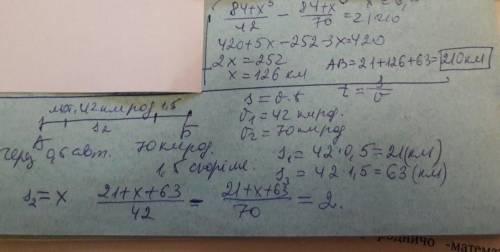 84+x/42 - 84+x/70 = 2 / 210
420+5x-252-3x=420
2x=252
x=126 км
AB=21+126+63=210км
мот. 42км год 1,5
S₂
A
Б
через 0,5 авт. 70км год.
1,5 скоріше.
s=v·t t=s/v
v₁=42 км год.
v₂=70км год.
s₁=42·0,5=21(км)
s₃=42·1,5=63(км)
s₂=x 21+x+63/42 - 21+x+63/70 = 2.
родничо -матема